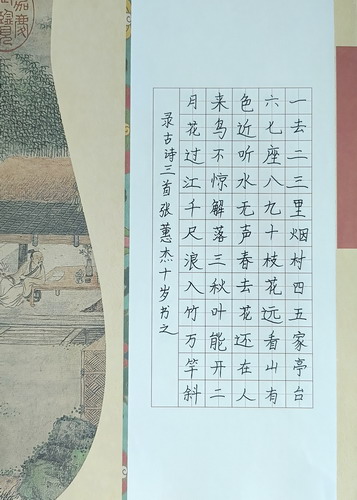 一去二三里烟村四五家亭台
六七座八九十枝花远看山有
色近听水无声春去花还在人
来鸟不惊解落三秋叶能开二
月花过江千尺浪入竹万竿斜
录古诗三首张蕙杰十岁书之